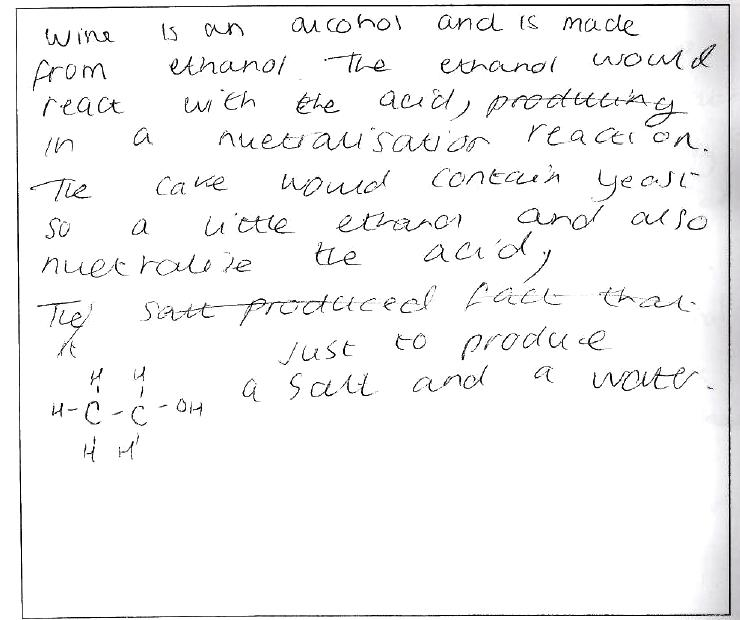 Wine is an alcohol and is made
from ethanol. The ethanol would
react with the acid, producing
in a nuetralisation reaction.
The cake would contain yeast
so a little ethanol and also
nuetralise the acid,
The salt produced fact that
it just to produce
H H a salt and a water.
H-C-C-OH
H H